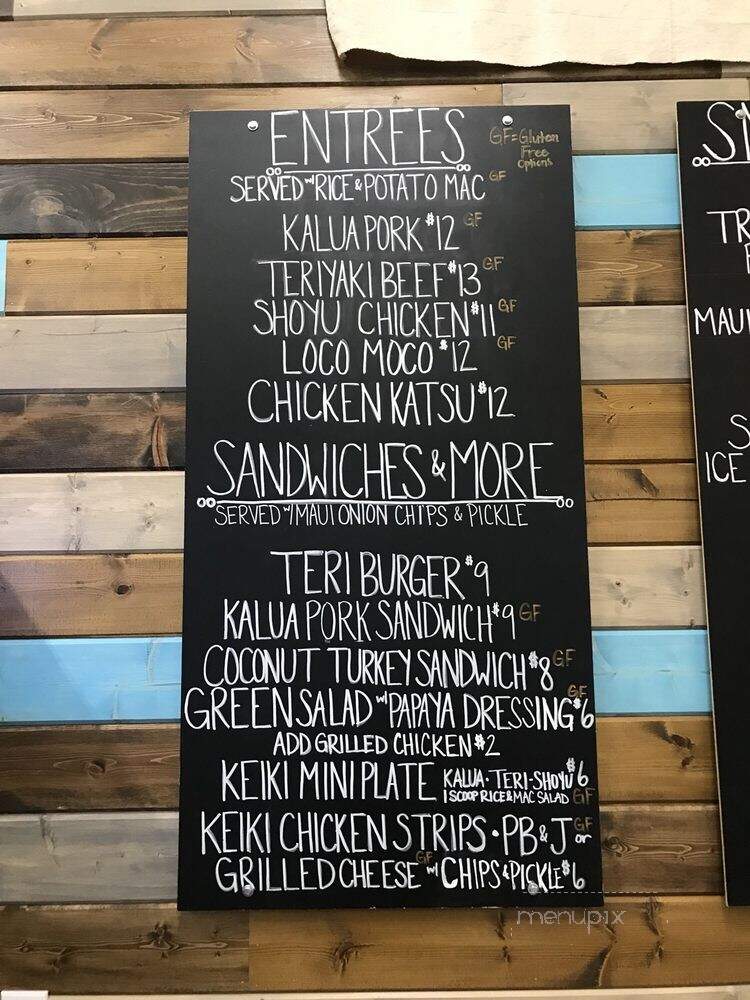 ENTREES
GF=Gluten
Free
Options
SERVED w/RICE & POTATO MAC GF
KALUA PORK $12 GF
TERIYAKI BEEF $13 GF
SHOYU CHICKEN $11 GF
LOCO MOCO $12 GF
CHICKEN KATSU $12
SANDWICHES & MORE
SERVED w/MAUI ONION CHIPS & PICKLE
TERI BURGER $9
KALUA PORK SANDWICH $9 GF
COCONUT TURKEY SANDWICH $8 GF
GREEN SALAD w/PAPAYA DRESSING $6 GF
ADD GRILLED CHICKEN $2
KEIKI MINI PLATE KALUA·TERI·SHOYU $6
1 SCOOP RICE & MAC SALAD GF
KEIKI CHICKEN STRIPS · PB & J GF or
GRILLED CHEESE GF w/ CHIPS & PICKLE $6
TR
MAUI
S
ICE
menupix